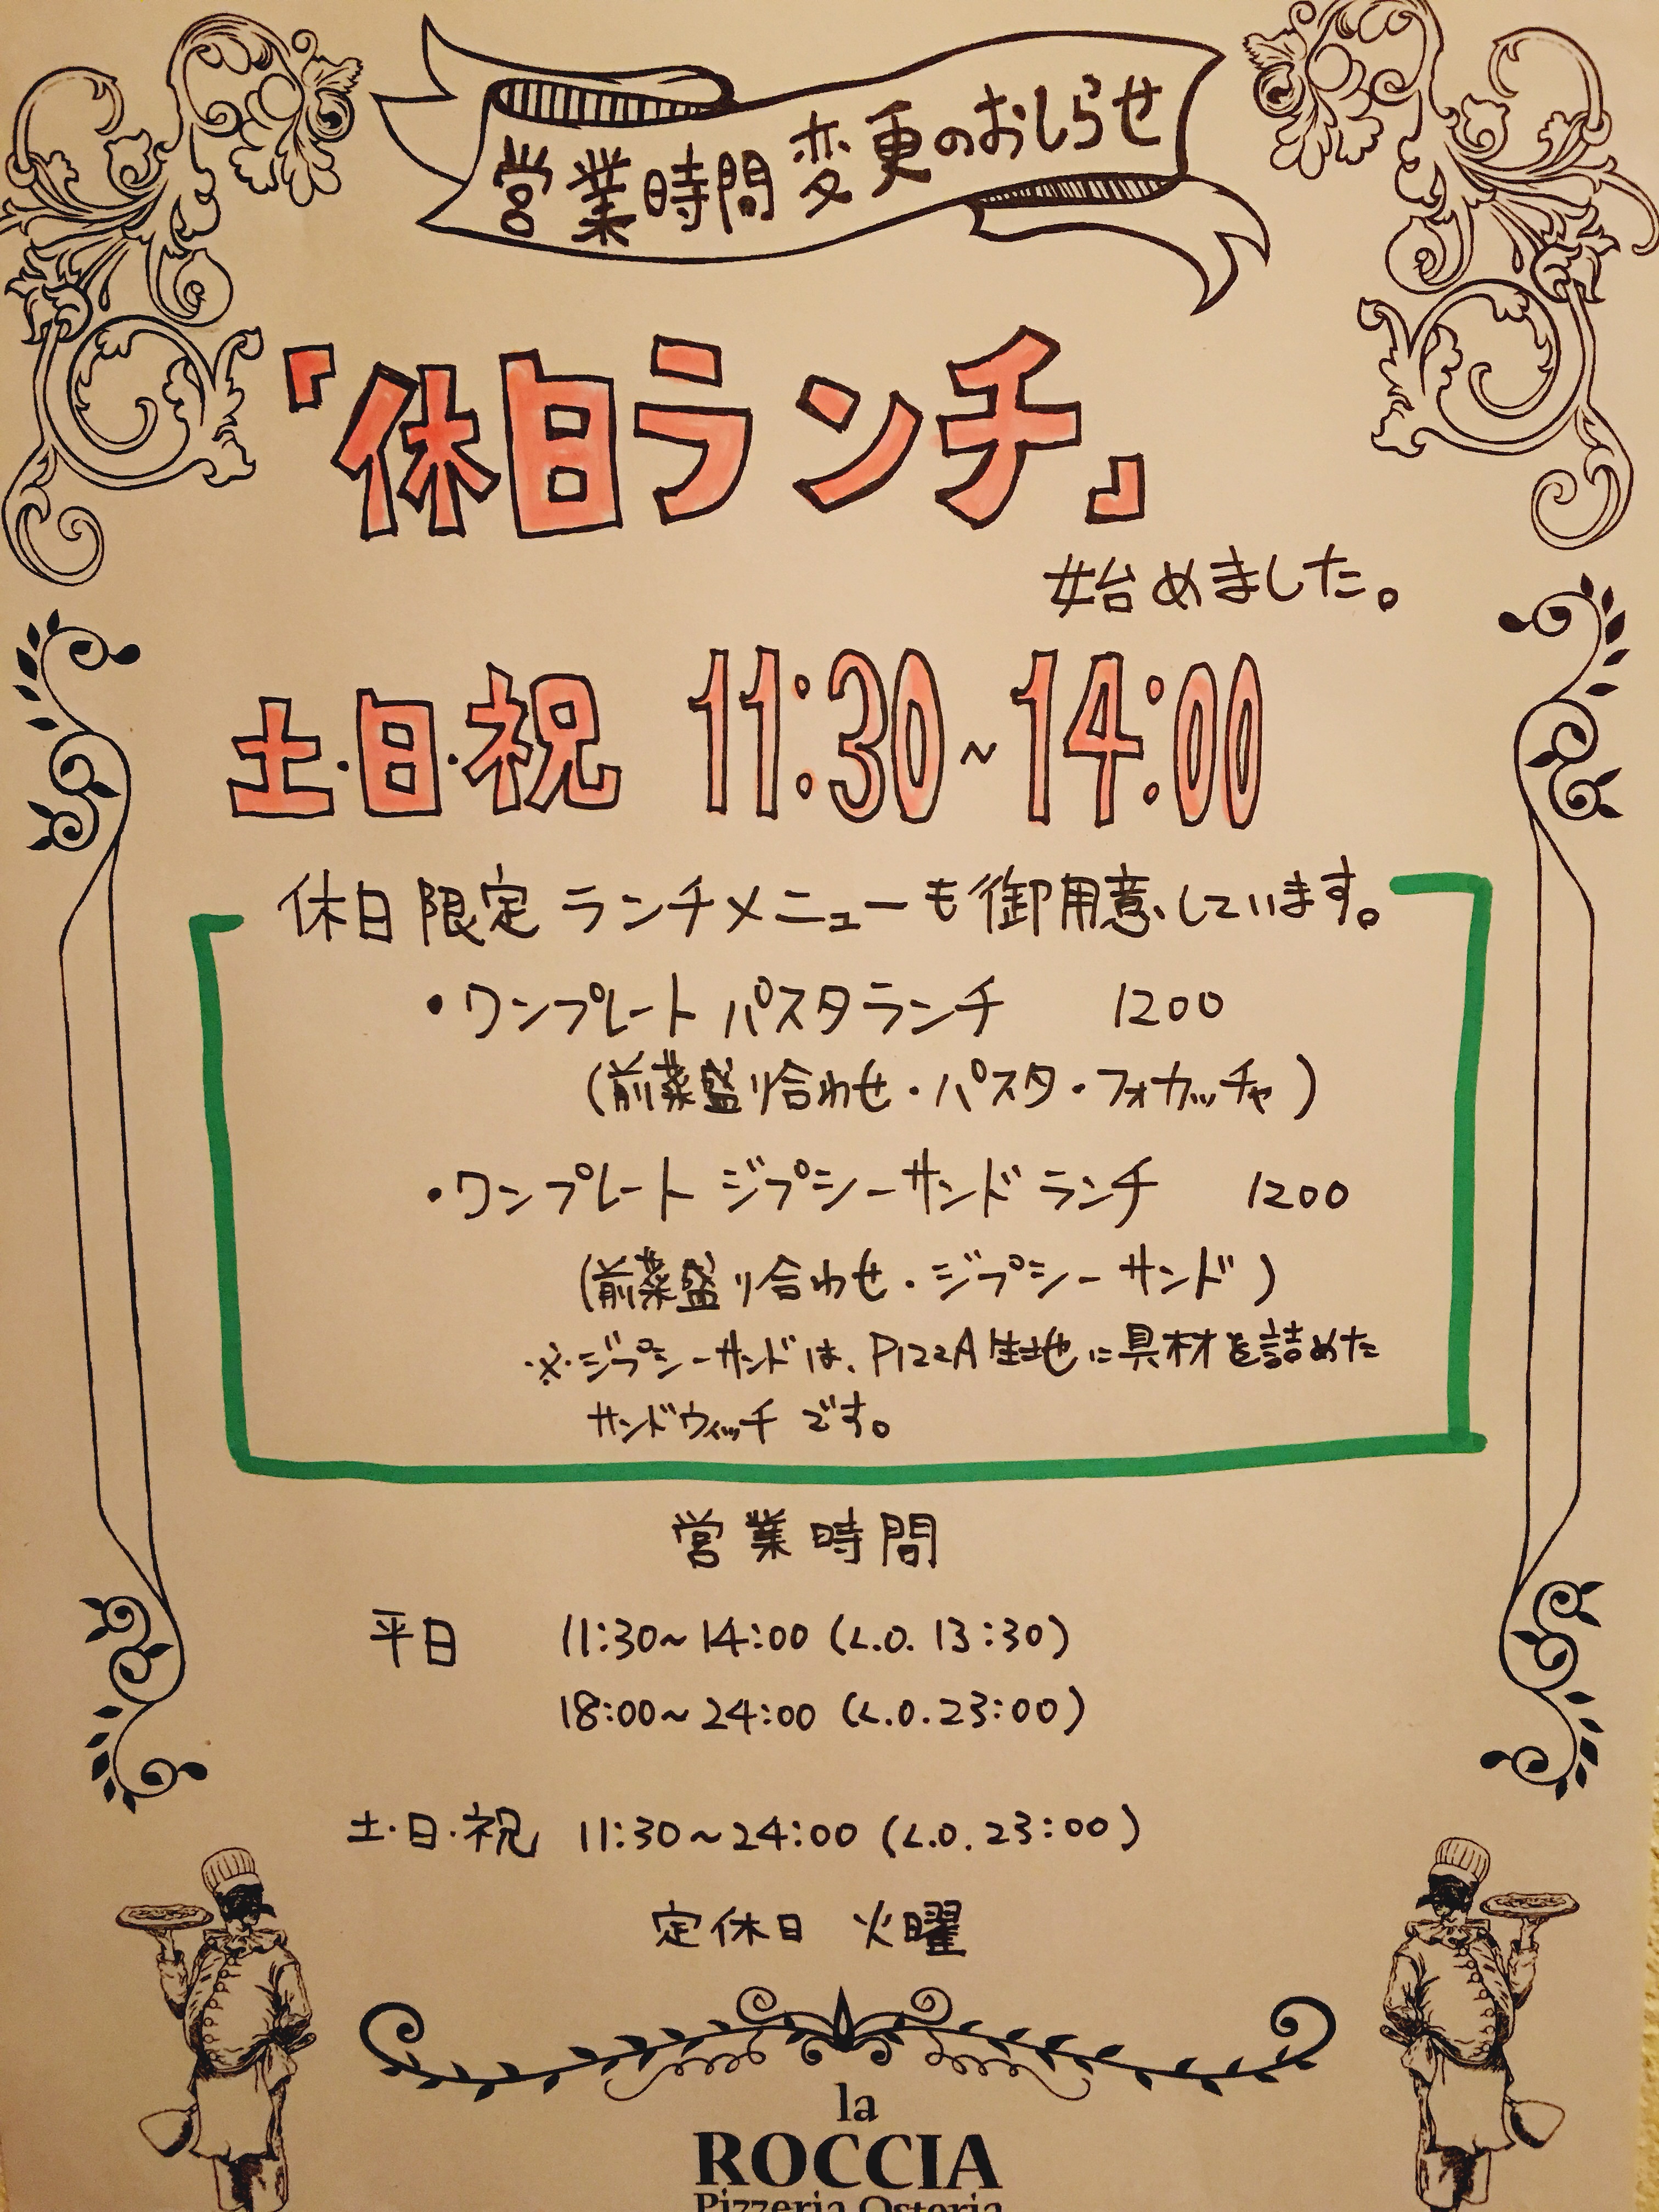 営業時間変更のおしらせ
『休日ランチ』
始めました。
土・日・祝 11:30~14:00
休日限定ランチメニューも御用意しています。
・ワンプレートパスタランチ 1200
(前菜盛り合わせ・パスタ・フォカッチャ)
・ワンプレート ジプシーサンドランチ 1200
(前菜盛り合わせ・ジプシーサンド)
※ジプシーサンドは、PIZZA生地に具材を詰めた
サンドウィッチです。
営業時間
平日 11:30~14:00 (L.O. 13:30)
18:00~24:00 (L.O. 23:00)
土・日・祝 11:30~24:00 (L.O. 23:00)
定休日 火曜
la
ROCCIA
Pizzeria Osteria